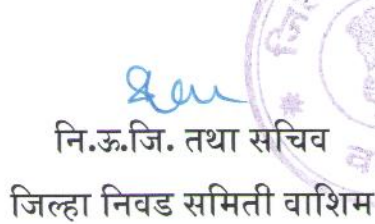 नि.ऊ.जि. तथा सचिव
जिल्हा निवड समिती वाशिम